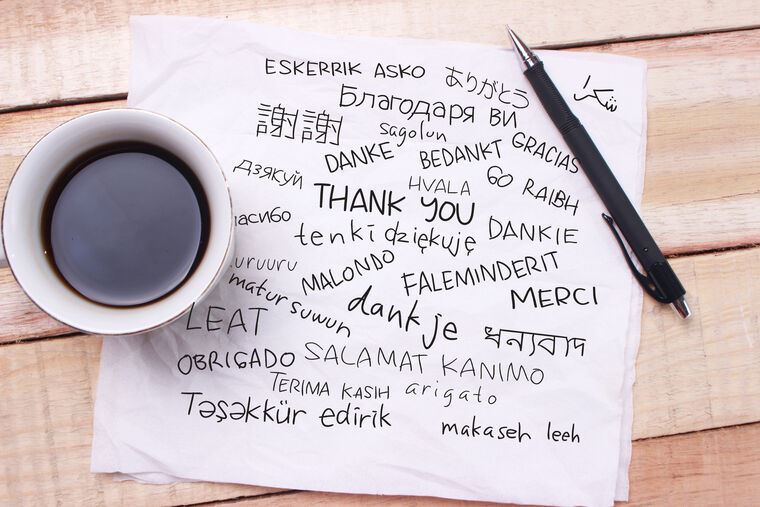 ESKERRIK ASKO
ありがとう
شكرا
Благодаря ВИ
謝謝
sagolun
DANKE
BEDANKT
GRACIAS
Дзякуй
HVALA
GO RAIBH
THANK YOU
асибо
tenki
dziękuję
DANKIE
uruuru
MALONDO
FALEMINDERIT
matur suwun
dank je
MERCI
LEAT
ধন্যবাদ
OBRIGADO
SALAMAT KANIMO
TERIMA KASIH
arigato
Təşəkkür edirik
makaseh leeh